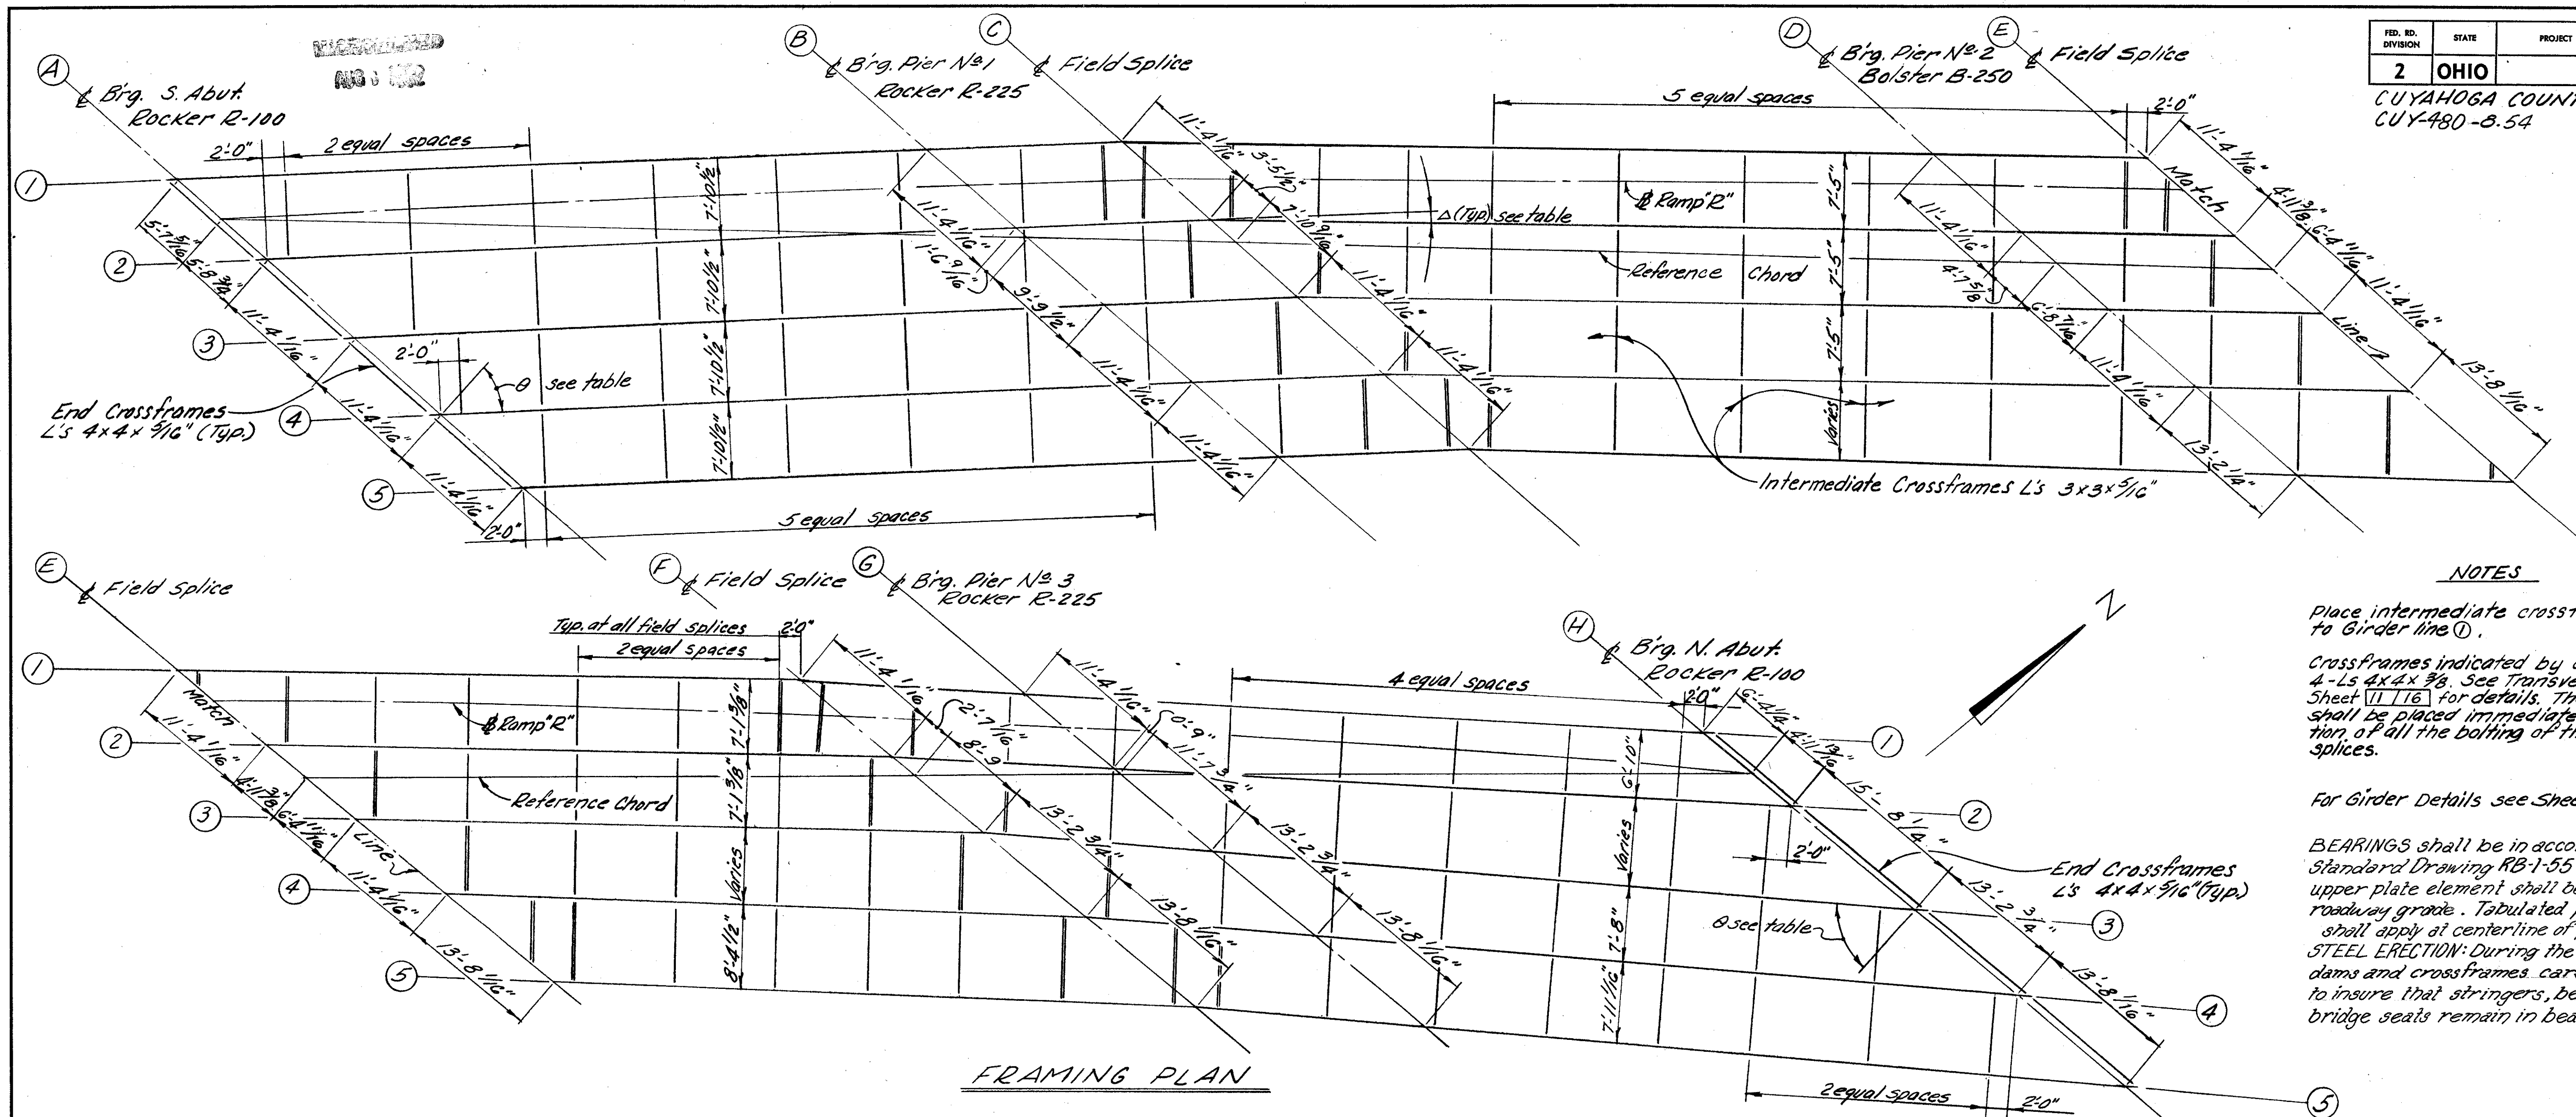 FED. RD. DIVISION
STATE
PROJECT
2
OHIO
CUYAHOGA COUNT
CUY-480-8.54
A
℄ Br'g. S. Abut.
Rocker R-100
B
℄ Br'g. Pier Nº 1
Rocker R-225
C
℄ Field Splice
D
℄ Br'g. Pier Nº 2
Bolster B-250
E
℄ Field Splice
2'-0"
2 equal spaces
5 equal spaces
2'-0"
1
2
3
4
5
5'-7 5/16"
5'-8 3/4"
11'-4 1/16"
11'-4 1/16"
11'-4 1/16"
7'-10 1/2"
7'-10 1/2"
7'-10 1/2"
7'-10 1/2"
2'-0"
θ see table
End Crossframes
L's 4x4x 5/16" (Typ.)
2'-0"
5 equal spaces
11'-4 1/16"
11'-4 1/16"
1'-6 9/16"
9'-9 1/2"
11'-4 1/16"
11'-4 1/16"
11'-4 1/16"
3'-5 1/2"
7'-10 9/16"
11'-4 1/16"
11'-4 1/16"
Δ (Typ.) see table
℄ Ramp "R"
Reference Chord
7'-5"
7'-5"
7'-5"
Varies
11'-4 1/16"
4'-7 5/8"
6'-8 7/16"
11'-4 1/16"
13'-2 1/4"
Match
Line
11'-4 1/16"
4'-11 3/8"
6'-4 11/16"
11'-4 1/16"
13'-8 1/16"
Intermediate Crossframes L's 3x3x 5/16"
E
℄ Field Splice
F
℄ Field Splice
G
℄ Br'g. Pier Nº 3
Rocker R-225
H
℄ Br'g. N. Abut.
Rocker R-100
N
Typ. at all field splices
2'-0"
2 equal spaces
4 equal spaces
2'-0"
1
2
3
4
5
Match
Line
11'-4 1/16"
4'-11 3/8"
6'-4 11/16"
11'-4 1/16"
13'-8 1/16"
℄ Ramp "R"
Reference Chord
7'-1 3/8"
7'-1 3/8"
Varies
8'-4 1/2"
11'-4 1/16"
2'-7 1/16"
8'-9
13'-2 3/4"
13'-8 1/16"
11'-4 1/16"
0'-9"
11'-7 3/4"
13'-2 3/4"
13'-8 1/16"
6'-10"
Varies
7'-8"
7'-11 1/16"
6'-4 1/4"
4'-11 13/16"
15'-8 1/4"
13'-2 3/4"
13'-8 1/16"
2'-0"
End Crossframes
L's 4x4x 5/16" (Typ.)
θ see table
2 equal spaces
2'-0"
1
2
3
4
5
FRAMING PLAN
NOTES
Place intermediate crossf
to Girder line ①.
Crossframes indicated by
4-Ls 4x4x 3/8. See Transve
Sheet 11/16 for details. Th
shall be placed immediate
tion of all the bolting of th
splices.
For Girder Details see Shee
BEARINGS shall be in acco
Standard Drawing RB-1-55
upper plate element shall b
roadway grade. Tabulated
shall apply at centerline of
STEEL ERECTION: During the
dams and crossframes car
to insure that stringers, be
bridge seats remain in bea